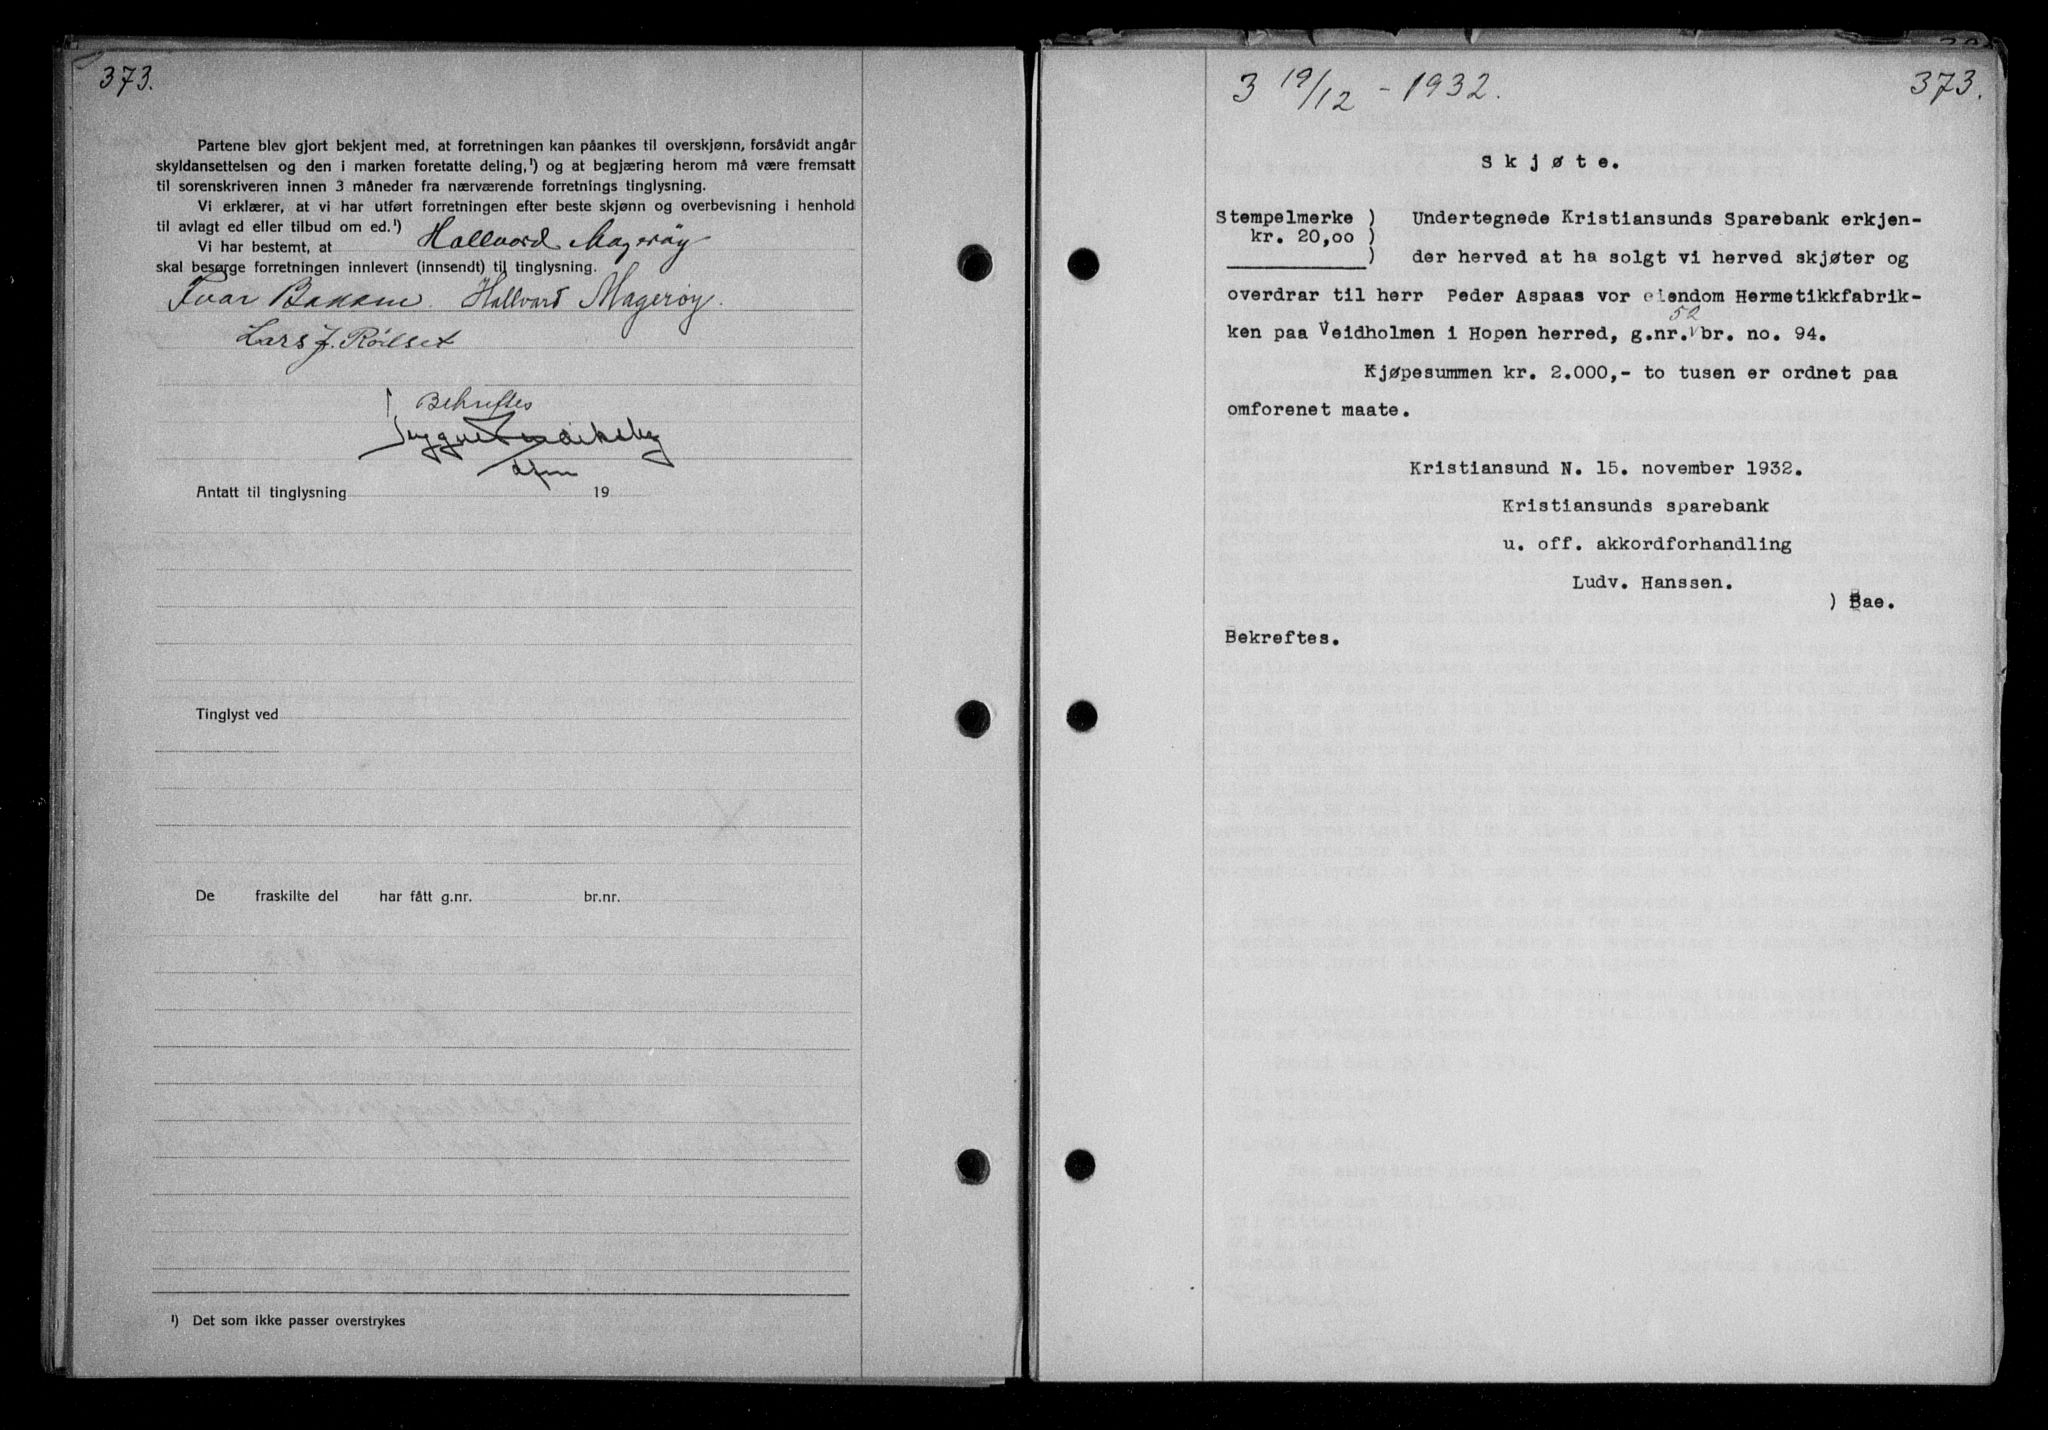 373.
Partene blev gjort bekjent med, at forretningen kan påankes til overskjønn, forsåvidt angår
skyldansettelsen og den i marken foretatte deling,¹) og at begjæring herom må være fremsatt
til sorenskriveren innen 3 måneder fra nærværende forretnings tinglysning.
Vi erklærer, at vi har utført forretningen efter beste skjønn og overbevisning i henhold
til avlagt ed eller tilbud om ed.¹)
Vi har bestemt, at Hallvard Magerøy
skal besørge forretningen innlevert (innsendt) til tinglysning.
Ivar Bakken. Hallvard Magerøy.
Lars J. Rödset
Bekreftes
Antatt til tinglysning 19
Tinglyst ved
De fraskilte del har fått g.nr. br.nr.
¹) Det som ikke passer overstrykes
3 19/12 - 1932. 373.
Skjøte.
Stempelmerke ) Undertegnede Kristiansunds Sparebank erkjen-
kr. 20,00 )
) der herved at ha solgt vi herved skjøter og
overdrar til herr Peder Aspaas vor eiendom Hermetikkfabrik-
ken paa Veidholmen i Hopen herred, g.nr. 52 br. no. 94.
Kjøpesummen kr. 2.000,- to tusen er ordnet paa
omforenet maate.
Kristiansund N. 15. november 1932.
Kristiansunds sparebank
u. off. akkordforhandling
Ludv. Hanssen.
) Bae.
Bekreftes.